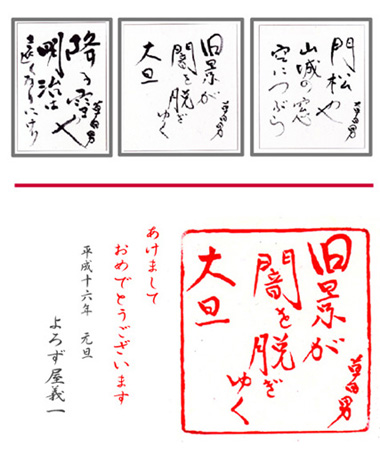 門松や
山城の窓
空につぶら
草田男
旧景が
闇を脱ぎ
ゆく
大旦
草田男
降る雪や
明治は
遠くなりにけり
草田男
旧景が
闇を脱ぎ
ゆく
大旦
草田男
あけまして
おめでとうございます
平成十六年 元旦
よろず屋義一